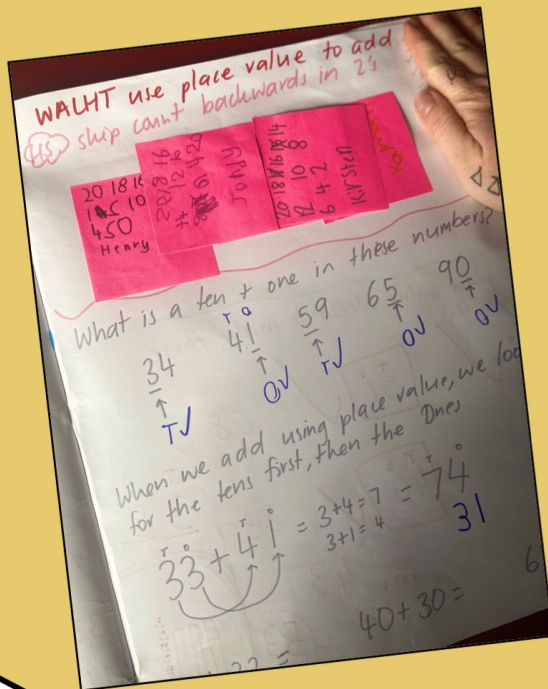 WALHT use place value to add
HS skip count backwards in 2's
20 18 16
10
450
Henry
20 18 16
12
Jonty
14
10 8
6 4 2
Kirsten
What is a ten + one in these numbers?
34
T✓
T O
41
O✓
59
T✓
65
O✓
90
O✓
When we add using place value, we loo
for the tens first, then the Ones
T O T O T O
33 + 41 = 3+4=7 = 74
3+1=4
31
40+30=
6